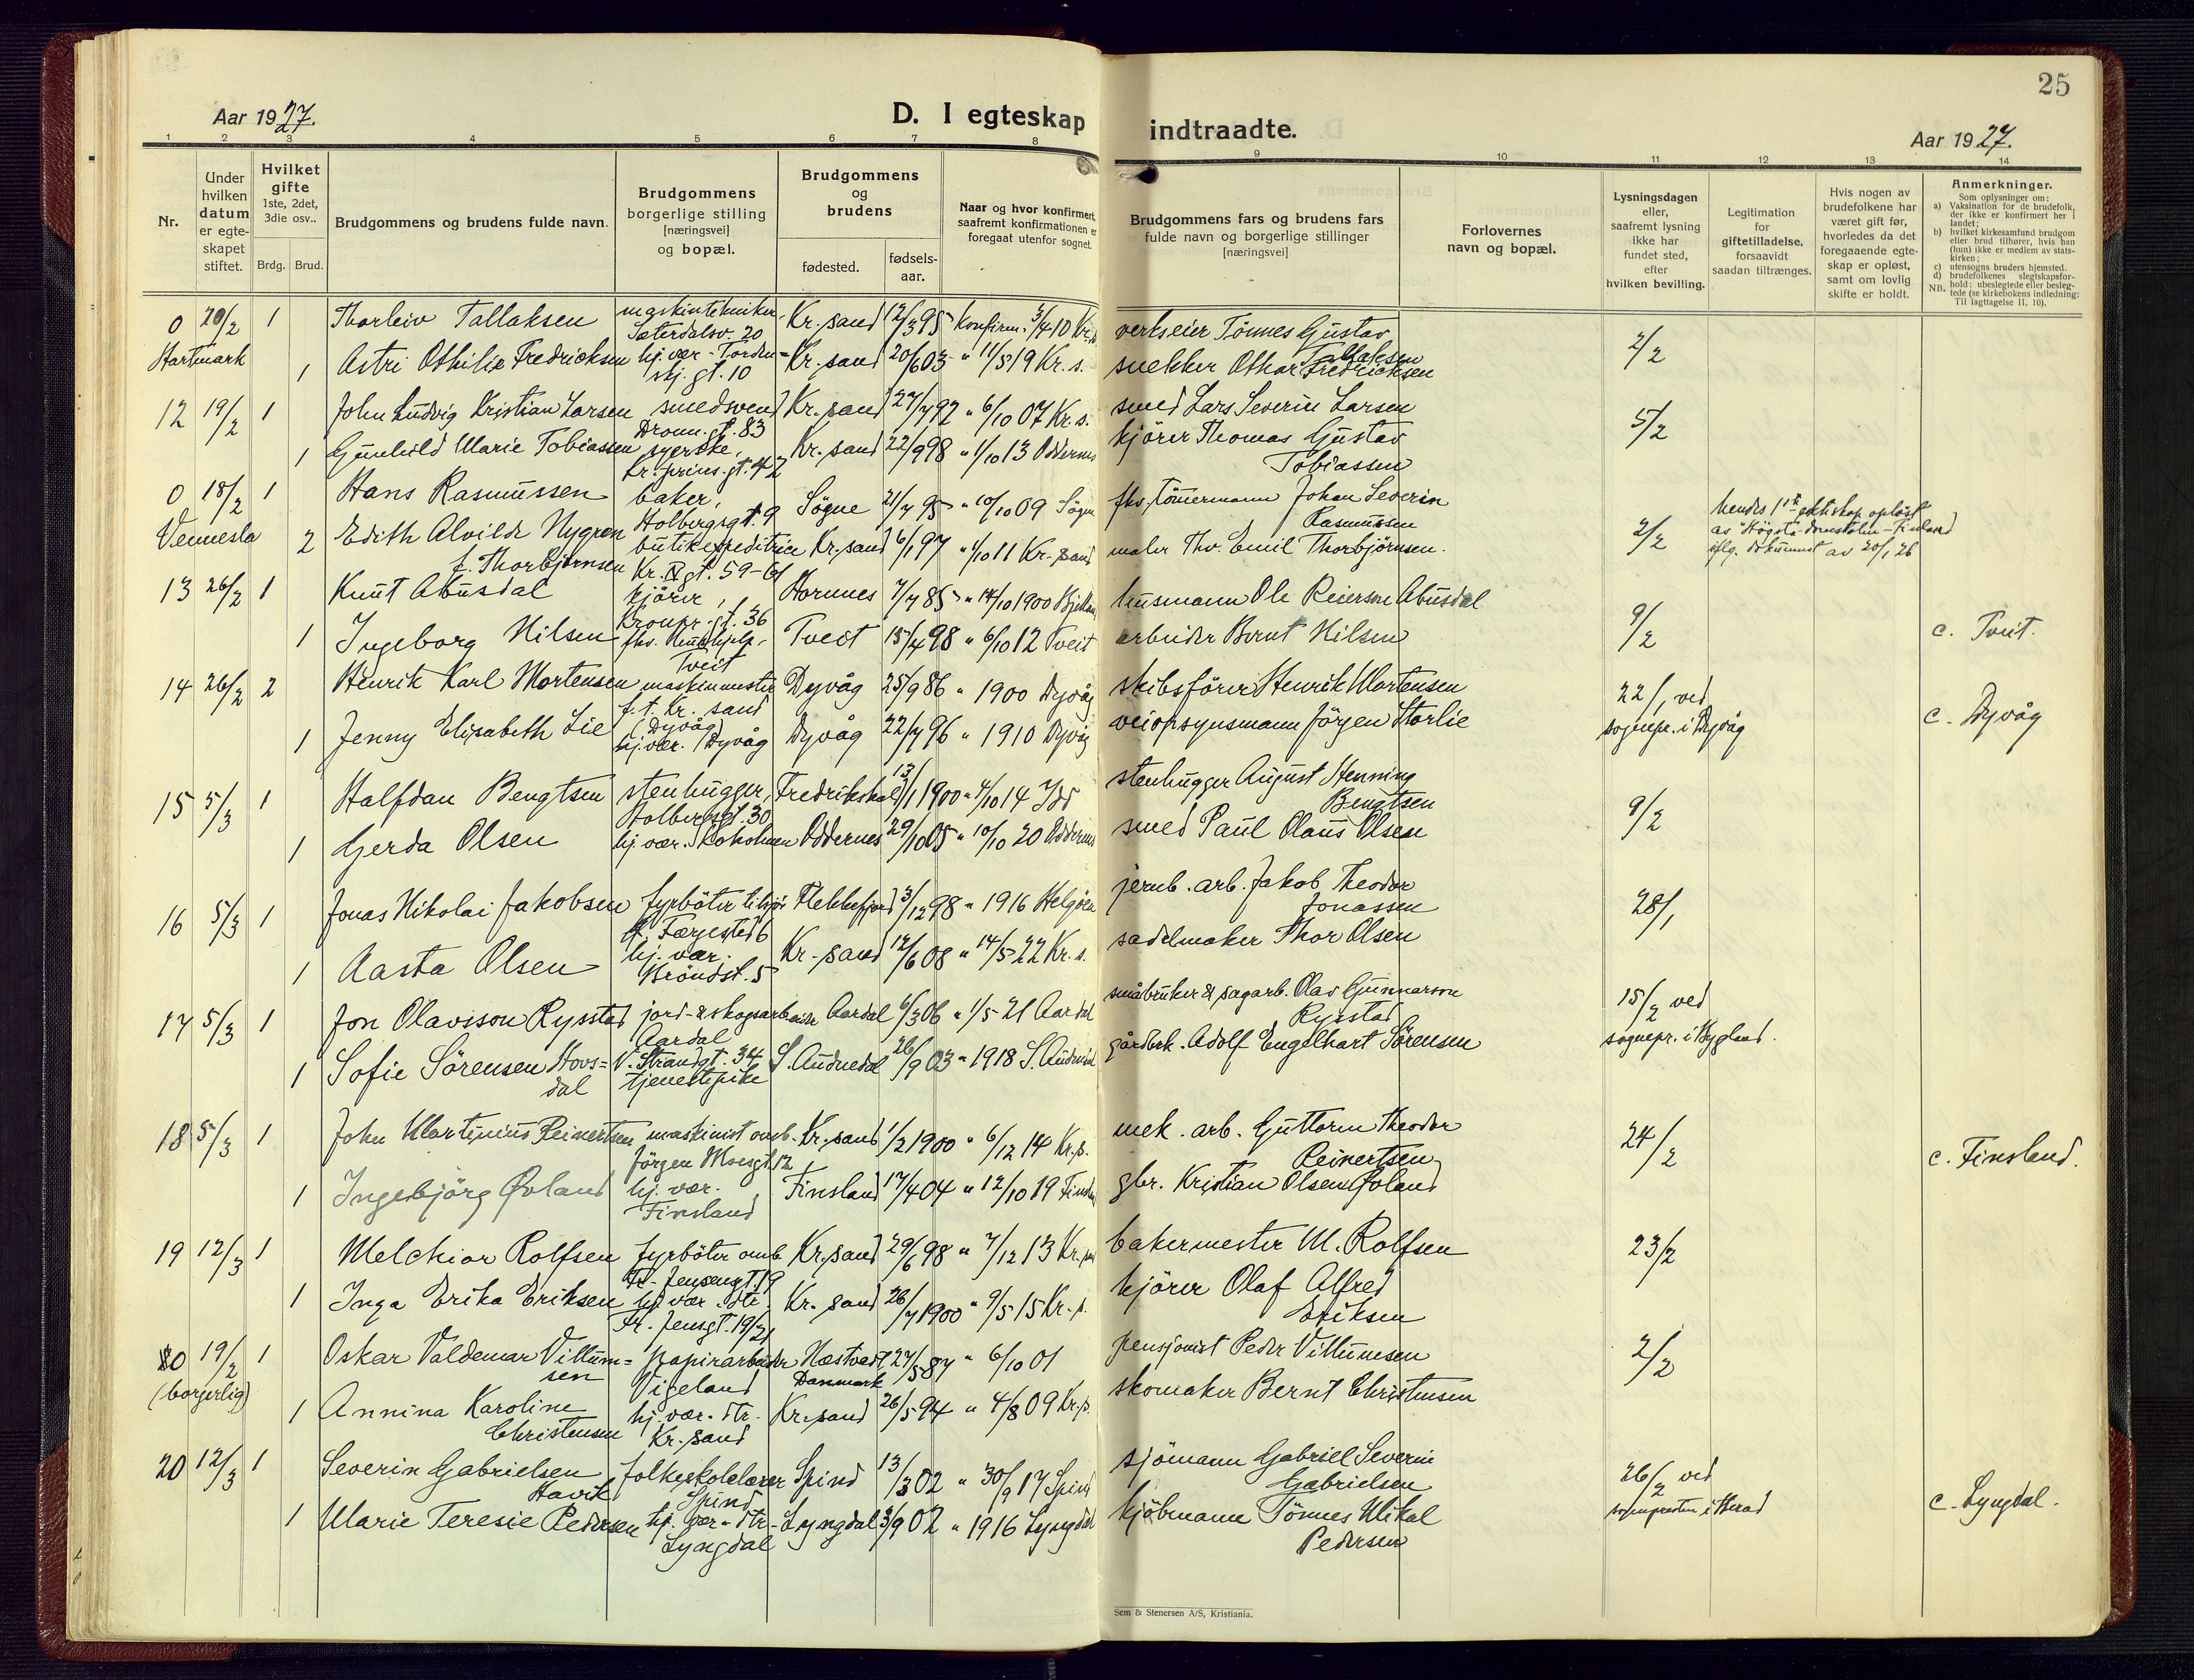 25
Aar 1927.
D. I egteskap indtraadte.
Aar 1927.
1 2 3 4 5 6 7 8 9 10 11 12 13 14
Nr.
Under hvilken datum er egte-skapet stiftet.
Hvilket gifte 1ste, 2det, 3die osv..
Brdg. Brud.
Brudgommens og brudens fulde navn.
Brudgommens borgerlige stilling [næringsvei] og bopæl.
Brudgommens og brudens
fødested.
fødsels-aar.
Naar og hvor konfirmert, saafremt konfirmationen er foregaat utenfor sognet.
Brudgommens fars og brudens fars fulde navn og borgerlige stillinger [næringsvei]
Forlovernes navn og bopæl.
Lysningsdagen eller, saafremt lysning ikke har fundet sted, efter hvilken bevilling.
Legitimation for giftetilladelse, forsaavidt saadan tiltrænges.
Hvis nogen av brudefolkene har været gift før, hvorledes da det foregaaende egte-skap er opløst, samt om lovlig skifte er holdt.
Anmerkninger.
Som oplysninger om:
a) Vaksination for de brudefolk, der ikke er konfirmert her i landet;
b) hvilket kirkesamfund brudgom eller brud tilhører, hvis han (hun) ikke er medlem av stats-kirken;
c) utensogns bruders hjemsted.
d) brudefolkenes slegtskapsfor-hold: ubeslegtede eller besleg-tede (se kirkebokens indledning: Til iagttagelse II. 10).
NB.
0 20/2 1 Thorleiv Tallaksen maskintekniker, Sæterdalsv. 20 Kr.sand 12/3 95 Konfirm. 3/4 10 Kr.s. verkseier Tönnes Gustav Tallaksen 2/2
Hartmark 1 Astri Othilie Fredricksen hj. vær - Torden=skj. gt. 10 Kr.sand 20/6 03 " 11/5 19 Kr. s. snekker Othar Fredricksen
12 19/2 1 John Ludvig Kristian Larsen smedsvend Dronn. gt. 83 Kr.sand 27/7 92 " 6/10 07 Kr. s. smed Lars Severin Larsen 5/2
1 Gunhild Marie Tobiassen syerske, Kr. prins. gt. 42 Kr.sand 22/9 98 " 1/10 13 Oddernes kjörer Thomas Gustav Tobiassen
0 18/2 1 Hans Rasmussen baker, Holbergsgt. 9 Sögne 21/7 95 " 10/10 09 Sögne fhv. tömmermann Johan Severin Rasmussen 2/2
Vennesla 2 Edith Alvilde Nygren f. Thorbjörnsen butikexpeditrice Kr. IV gt. 59-61 Kr.sand 6/1 97 " 4/10 11 Kr.sand maler Thv. Emil Thorbjörnsen.
hendes 1ste ekteskap oplöst av "Högsta domstolen - Finland iflg. dokument av 20/1 26
13 26/2 1 Knut Abusdal kjörer, Kronpr. gt. 36 Hornnes 7/7 85 " 14/10 1900 husmann Ole Reiersen Abusdal 9/2
1 Ingeborg Nilsen fhv. Tveit Tveit 15/4 98 " 6/10 12 Tveit arbeider Bernt Nilsen c. Tveit.
14 26/2 2 Henrik Karl Mortensen maskinmester f. t. Kr. sand (Dyvåg) Dyvåg 25/9 86 " 1900 Dyvåg skibsförer Henrik Mortensen 22/1 ved sognepr. i Dyvåg
1 Jenny Elisabeth Lie hj. vær. (Dyvåg Dyvåg 22/7 96 " 1910 Dyvåg veiopsynsmann Jörgen Storlie c. Dyvåg
15 5/3 1 Halfdan Bengtsen stenhugger, Holbergsgt. 30 Fredrikshald 13/1 1900 " 4/10 14 Idd stenhugger August Henning Bengtsen 9/2
1 Gerda Olsen hj. vær. Oddernes 29/10 05 " 10/10 20 Oddernes smed Paul Olaus Olsen
16 5/3 1 Jonas Nikolai Jakobsen fyrböter tilsjös Færgested 6 Flekkefjord 3/12 98 " 1916 Helgöen jernb. arb. Jakob Theodor Jonassen 28/1
1 Aasta Olsen hj. vær. Bröndst. 5 Kr.sand 12/6 08 " 14/5 22 Kr. s. sadelmaker Thor Olsen
17 5/3 1 Jon Olavsson Rysstad jord- & skogsarbeider Aardal Aardal 6/3 06 " 1/5 21 Aardal småbruker & sagarb. Olav Gunnarson Rysstad 15/2 ved sognepr. i Bygland.
1 Sofie Sörensen Hovs=dal V. Strandgt. 34 tjenestepike S. Audnedal 26/9 03 " 1918 S. Audnedal gårdbrk. Adolf Engelhart Sörensen
18 5/3 1 John Martinius Reinertsen maskinist omb. Jörgen Moesgt. 12 Kr.sand 1/2 1900 " 6/12 14 Kr.s. mek. arb. Guttorm Theodor Reinertsen 24/2
1 Ingebjörg Øvland hj. vær. Finsland Finsland 17/4 04 " 12/10 19 Finsland gbr. Kristian Olsen Øvland c. Finsland.
19 12/3 1 Melchior Rolfsen fyrböter omb Fr. Jensensgt. 19 Kr.sand 29/6 98 " 7/12 13 Kr.sand bakermester M. Rolfsen 23/2
1 Inga Erika Eriksen hj. vær. dtr. Fr. Jensgt. 19/21 Kr. sand 26/7 1900 " 9/5 15 Kr.s. kjörer Olaf Alfred Eriksen
0 19/2 1 Oskar Valdemar Villum=sen papirarbeider Vigeland Næstved, Danmark 27/5 87 " 6/10 01 pensjonist Peder Villumsen 2/2
(borgerlig) 1 Annina Karoline Christensen hj. vær. dtr. Kr.sand Kr.sand 26/5 94 " 4/8 09 Kr.s. skomaker Bernt Christensen
20 12/3 1 Severin Gabrielsen Havik folkeskolelærer Spind Spind 13/3 02 " 30/9 17 Spind sjömann Gabriel Severin Gabrielsen 26/2 ved sognepresten i Herad
1 Marie Teresie Pedersen hj. vær - dtr - Lyngdal Lyngdal 3/9 02 " 1916 Lyngdal kjöbmann Tönnes Mikal Pedersen c. Lyngdal.
Sem & Stenersen A/S, Kristiania.